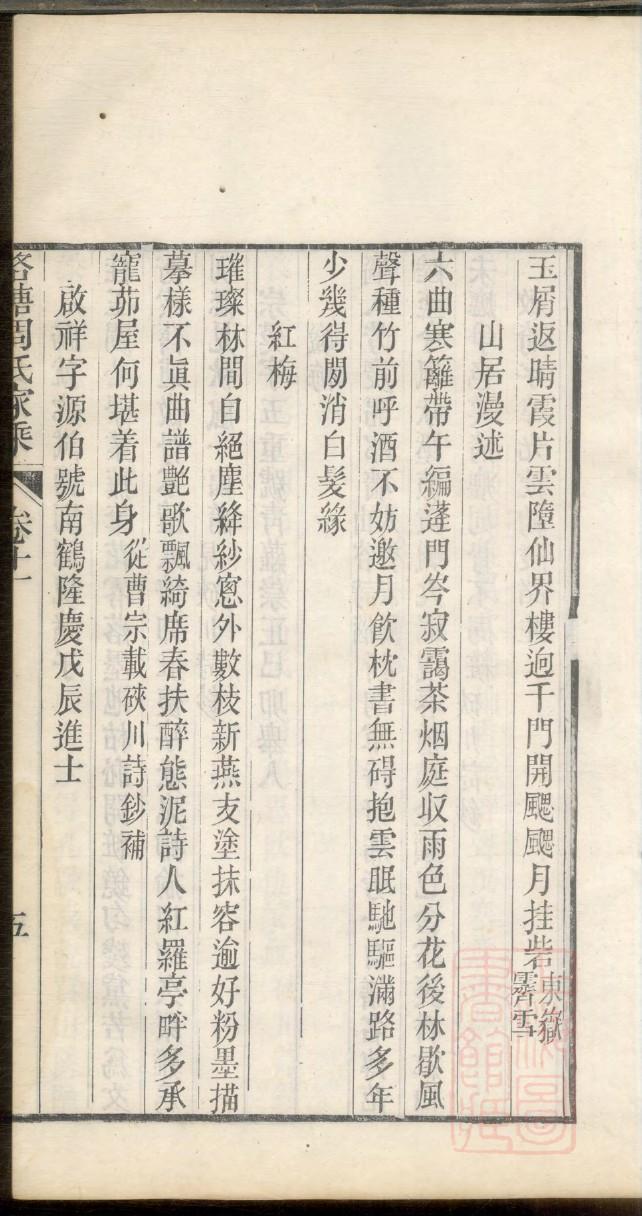 玉屑返晴霞片雲墮仙界樓逈千門開颸颸月挂砦東嶽霽雪
山居漫述
六曲寒籬帶午編蓬門岑寂靄茶烟庭収雨色分花後林歇風
聲種竹前呼酒不妨邀月飲枕書無碍抱雲眠馳驅滿路多年
少幾得閑消白髮緣
紅梅
璀璨林間自絕塵絳紗窓外數枝新燕支塗抹容逾好粉墨描
摹樣不眞曲譜艷歌飄綺席春扶醉態泥詩人紅羅亭畔多承
寵茆屋何堪着此身從曹宗載硤川詩鈔補
啟祥字源伯號南鶴隆慶戊辰進士
洛塘周氏家乘 卷十一 五